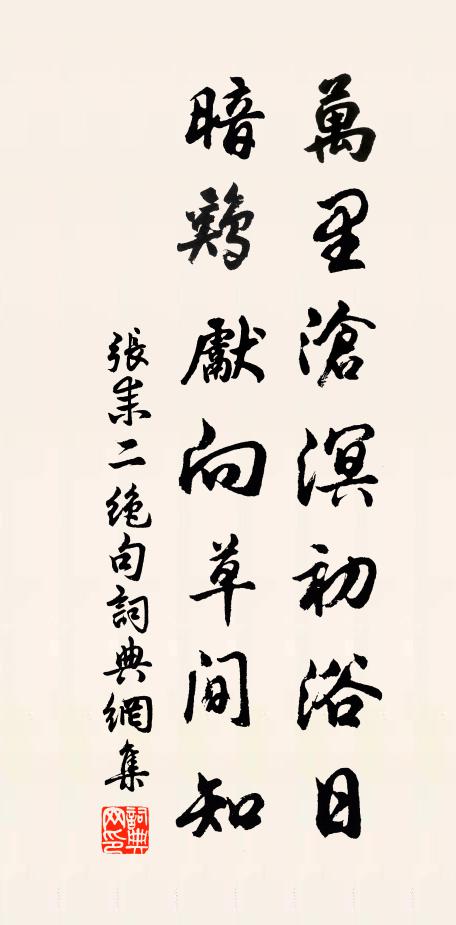 萬里滄溟初浴日
暗鶏獻向草間知
張耒二絶句詞典網集
詞典网印